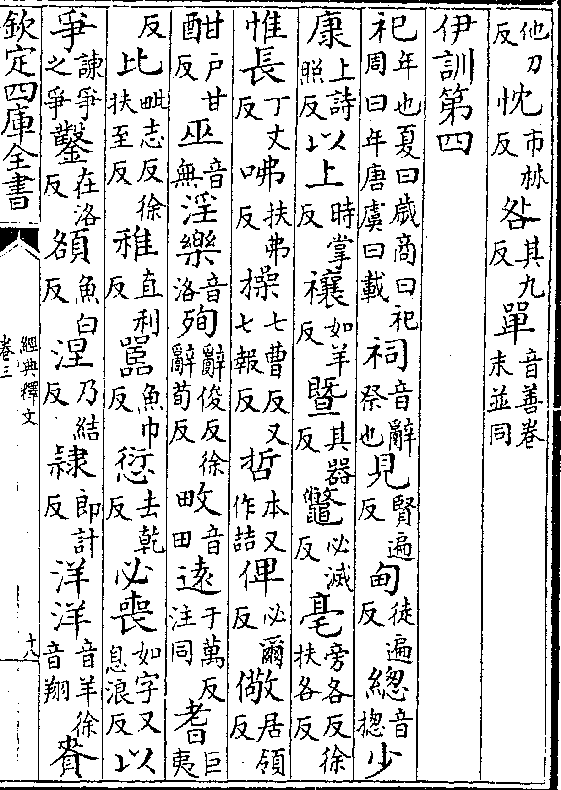 他刀反忱市林反咎其九反單音善卷末並同
伊訓第四
祀年也夏曰歲商曰祀周曰年唐虞曰載祠音辭祭也見賢遍反甸徒遍反緫音摠少
康上詩照反以上時掌反禳如羊反曁其器反鼈必滅反亳旁各反徐扶各反
惟長丁丈反咈扶弗反操七曹反又七報反哲本又作喆俾必爾反儆居領反
酣户甘反巫音無淫樂音洛殉辭俊反徐辭荀反畋音田遠于萬反注同耆巨夷
反比毗志反徐扶至反稚直利反嚚魚巾反愆去乾反必喪如字又息浪反以
爭諫爭之爭鑿在洛反頟魚白反湼乃結反隷郎計反洋洋音羊徐音翔賚
欽定四庫全書
經典釋文
卷三
十八